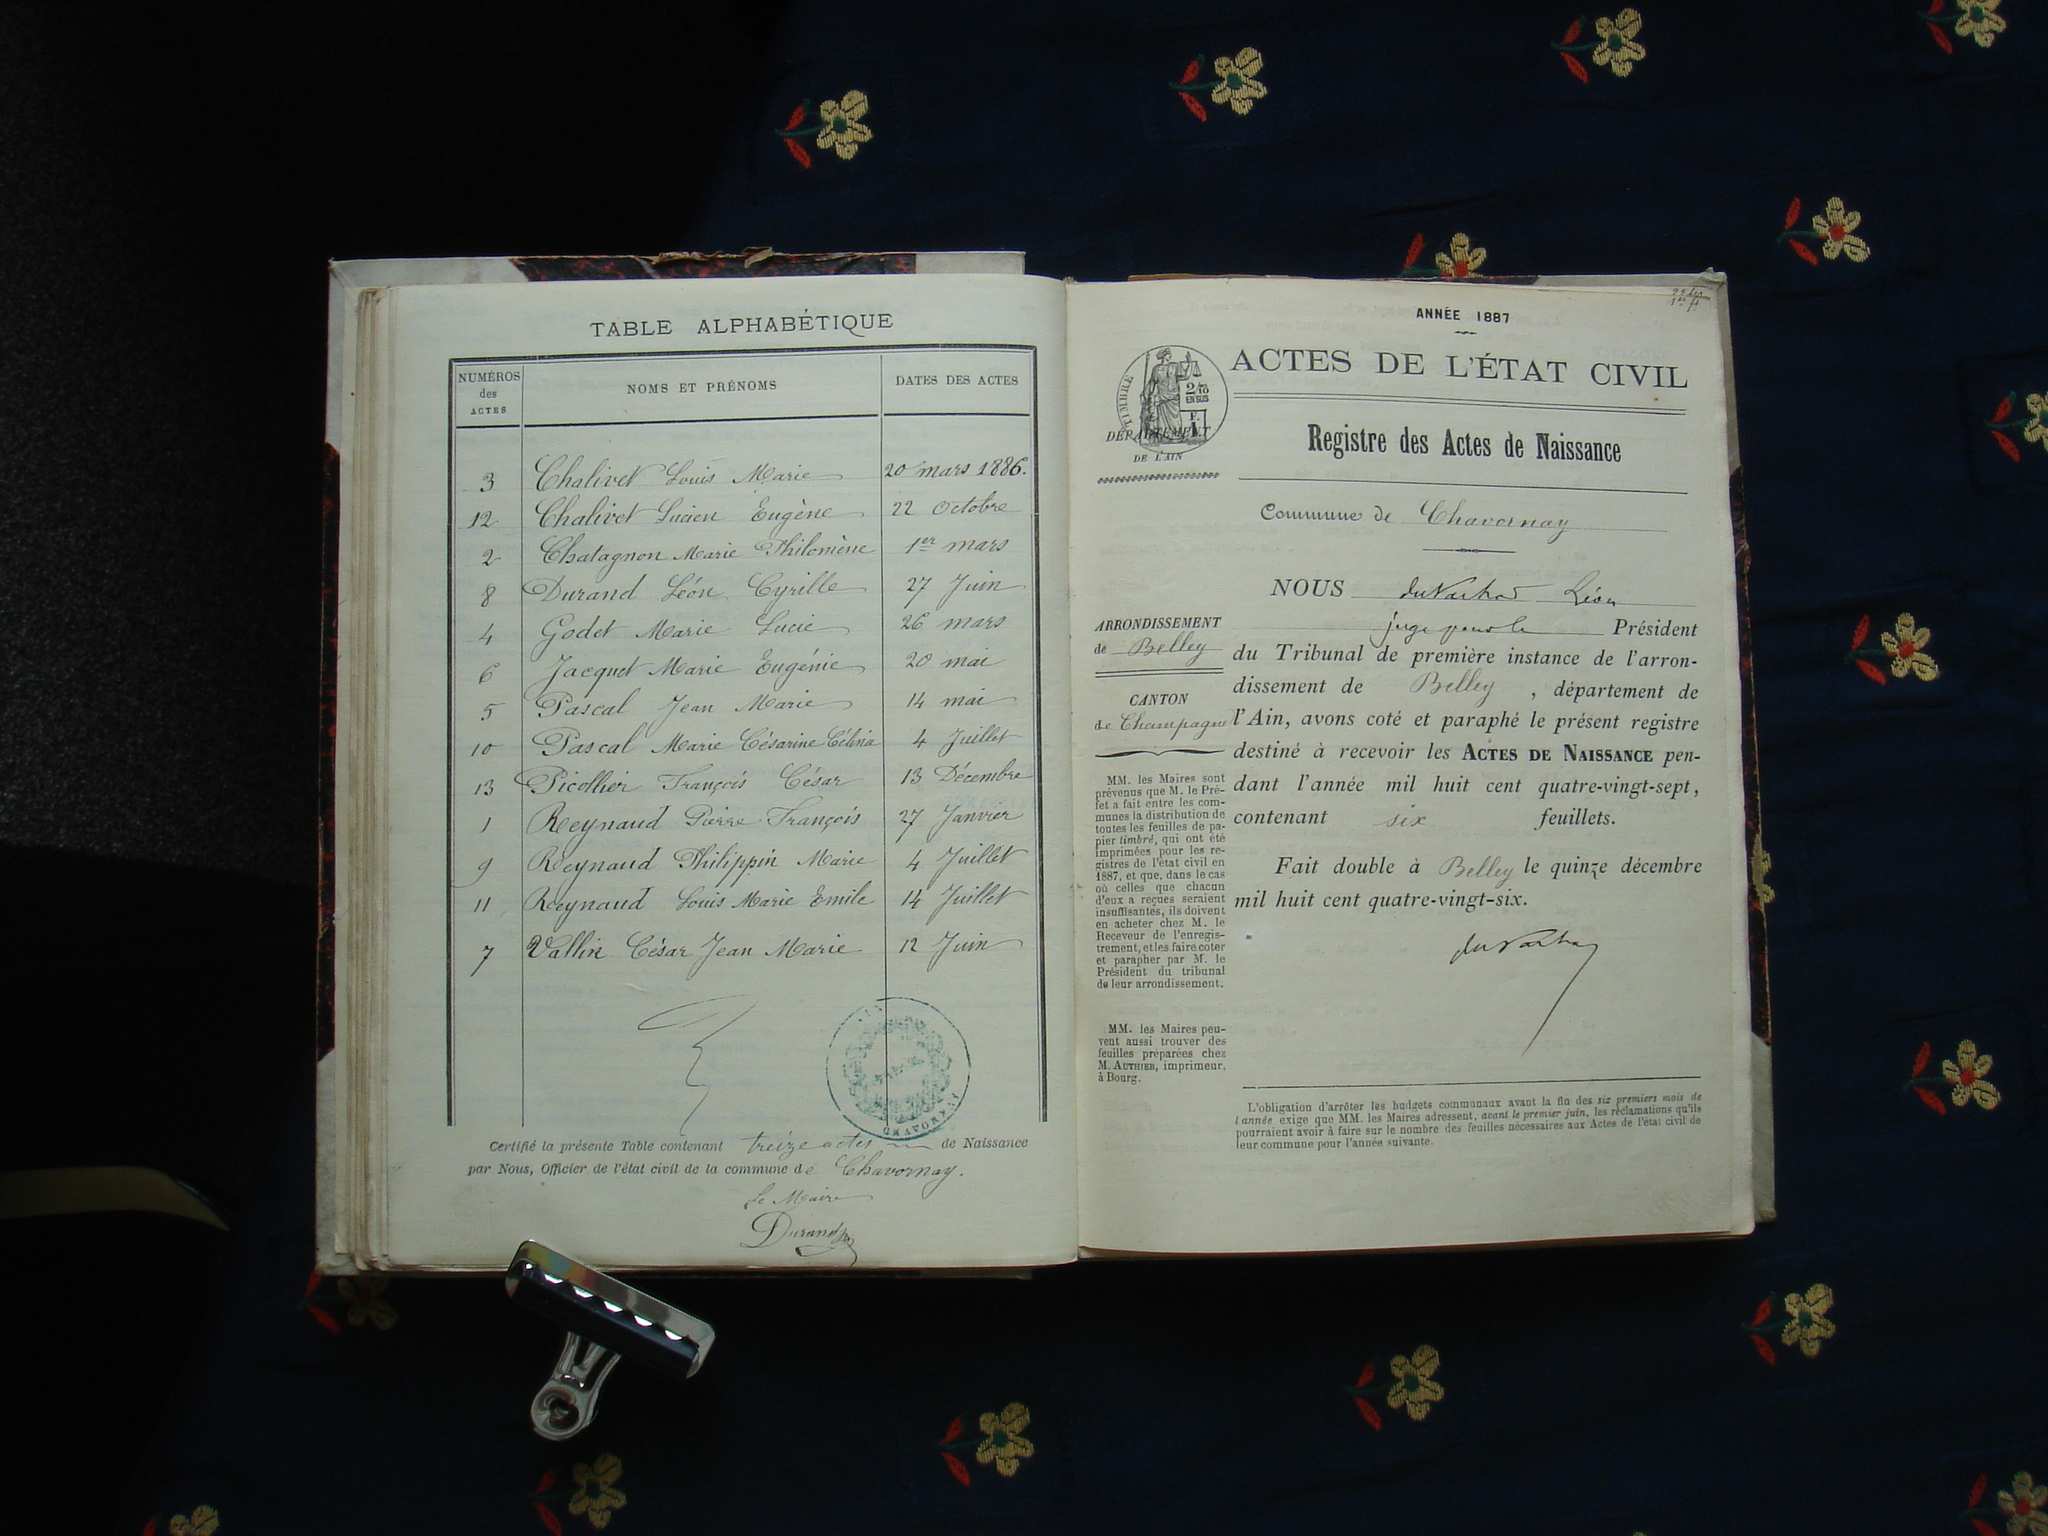 TABLE ALPHABÉTIQUE
NUMÉROS des ACTES NOMS ET PRÉNOMS DATES DES ACTES
3 Chalivet Louis Marie 20 mars 1886.
12 Chalivet Lucien Eugène 22 Octobre
2 Chatagnon Marie Philomène 1er mars
8 Durand Léon Cyrille 27 Juin
4 Godet Marie Lucie 26 mars
6 Jacquet Marie Eugénie 20 mai
5 Pascal Jean Marie 14 mai
10 Pascal Marie Césarine Célina 4 Juillet
13 Picollier François César 13 Décembre
1 Reynaud Pierre François 27 Janvier
9 Reynaud Philippin Marie 4 Juillet
11 Reynaud Louis Marie Emile 14 Juillet
7 Vallin César Jean Marie 12 Juin
CHAVORNAY
Certifié la présente Table contenant treize actes de Naissance
par Nous, Officier de l'état civil de la commune de Chavornay.
Le Maire
Durand
ANNÉE 1887
ACTES DE L'ÉTAT CIVIL
TIMBRE
2/10
EN SUS
F.
1
DÉPARTEMENT
DE L'AIN
Registre des Actes de Naissance
Commune de Chavornay
ARRONDISSEMENT
de Belley
CANTON
de Champagne
MM. les Maires sont
prévenus que M. le Pré-
fet a fait entre les com-
munes la distribution de
toutes les feuilles de pa-
pier timbré, qui ont été
imprimées pour les re-
gistres de l'état civil en
1887, et que, dans le cas
où celles que chacun
d'eux a reçues seraient
insuffisantes, ils doivent
en acheter chez M. le
Receveur de l'enregis-
trement, et les faire coter
et parapher par M. le
Président du tribunal
de leur arrondissement.
MM. les Maires peu-
vent aussi trouver des
feuilles préparées chez
M. AUTHIER, imprimeur,
à Bourg.
NOUS Léon
juge pour le Président
du Tribunal de première instance de l'arron-
dissement de Belley, département de
l'Ain, avons coté et paraphé le présent registre
destiné à recevoir les ACTES DE NAISSANCE pen-
dant l'année mil huit cent quatre-vingt-sept,
contenant six feuillets.
Fait double à Belley le quinze décembre
mil huit cent quatre-vingt-six.
L'obligation d'arrêter les budgets communaux avant la fin des six premiers mois de
l'année exige que MM. les Maires adressent, avant le premier juin, les réclamations qu'ils
pourraient avoir à faire sur le nombre des feuilles nécessaires aux Actes de l'état civil de
leur commune pour l'année suivante.